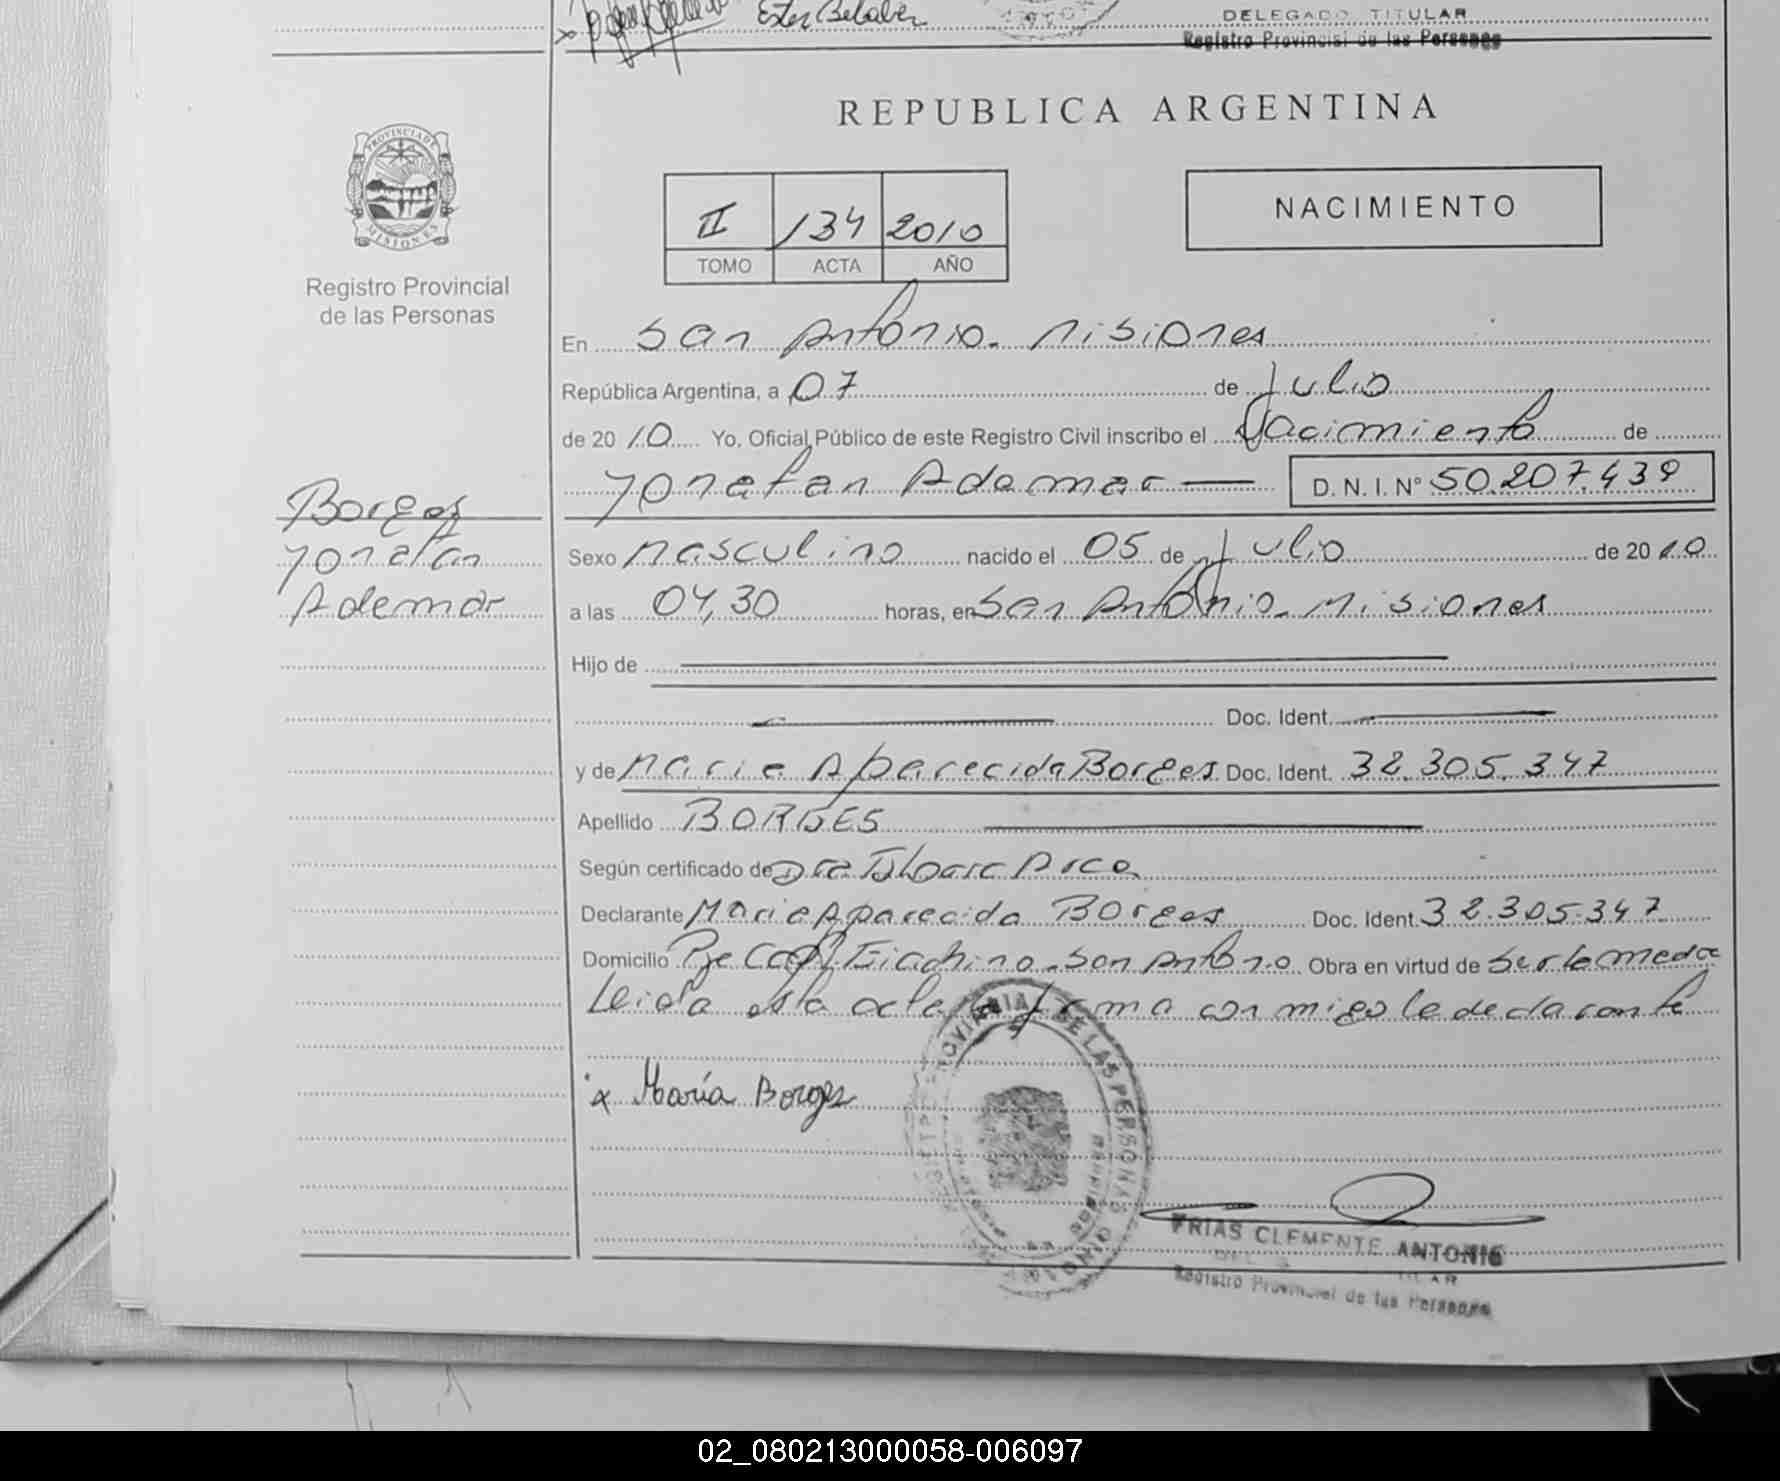 Ester Belaber
DELEGADO TITULAR
Registro Provincial de las Personas
REPUBLICA ARGENTINA
PROVINCIA DE
MISIONES
Registro Provincial
de las Personas
II 134 2010
TOMO ACTA AÑO
NACIMIENTO
En San Antonio. Misiones
República Argentina, a 07 de Julio
de 2010 Yo, Oficial Público de este Registro Civil inscribo el Nacimiento de
Yonatan Ademar D. N. I. N° 50.207.439
Borges
Yonatan
Ademar
Sexo Masculino nacido el 05 de Julio de 2010
a las 04,30 horas, en San Antonio. Misiones
Hijo de
Doc. Ident.
y de Maria Aparecida Borges Doc. Ident. 32.305.347
Apellido BORGES
Según certificado de Dra
Declarante Maria Aparecida Borges Doc. Ident. 32.305.347
Domicilio San Antonio Obra en virtud de
Leida esta acta firma conmigo la declarante
x María Borges
PROVINCIAL DE LAS PERSONAS
FRIAS CLEMENTE ANTONIO
Registro Provincial de las Personas
02_080213000058-006097